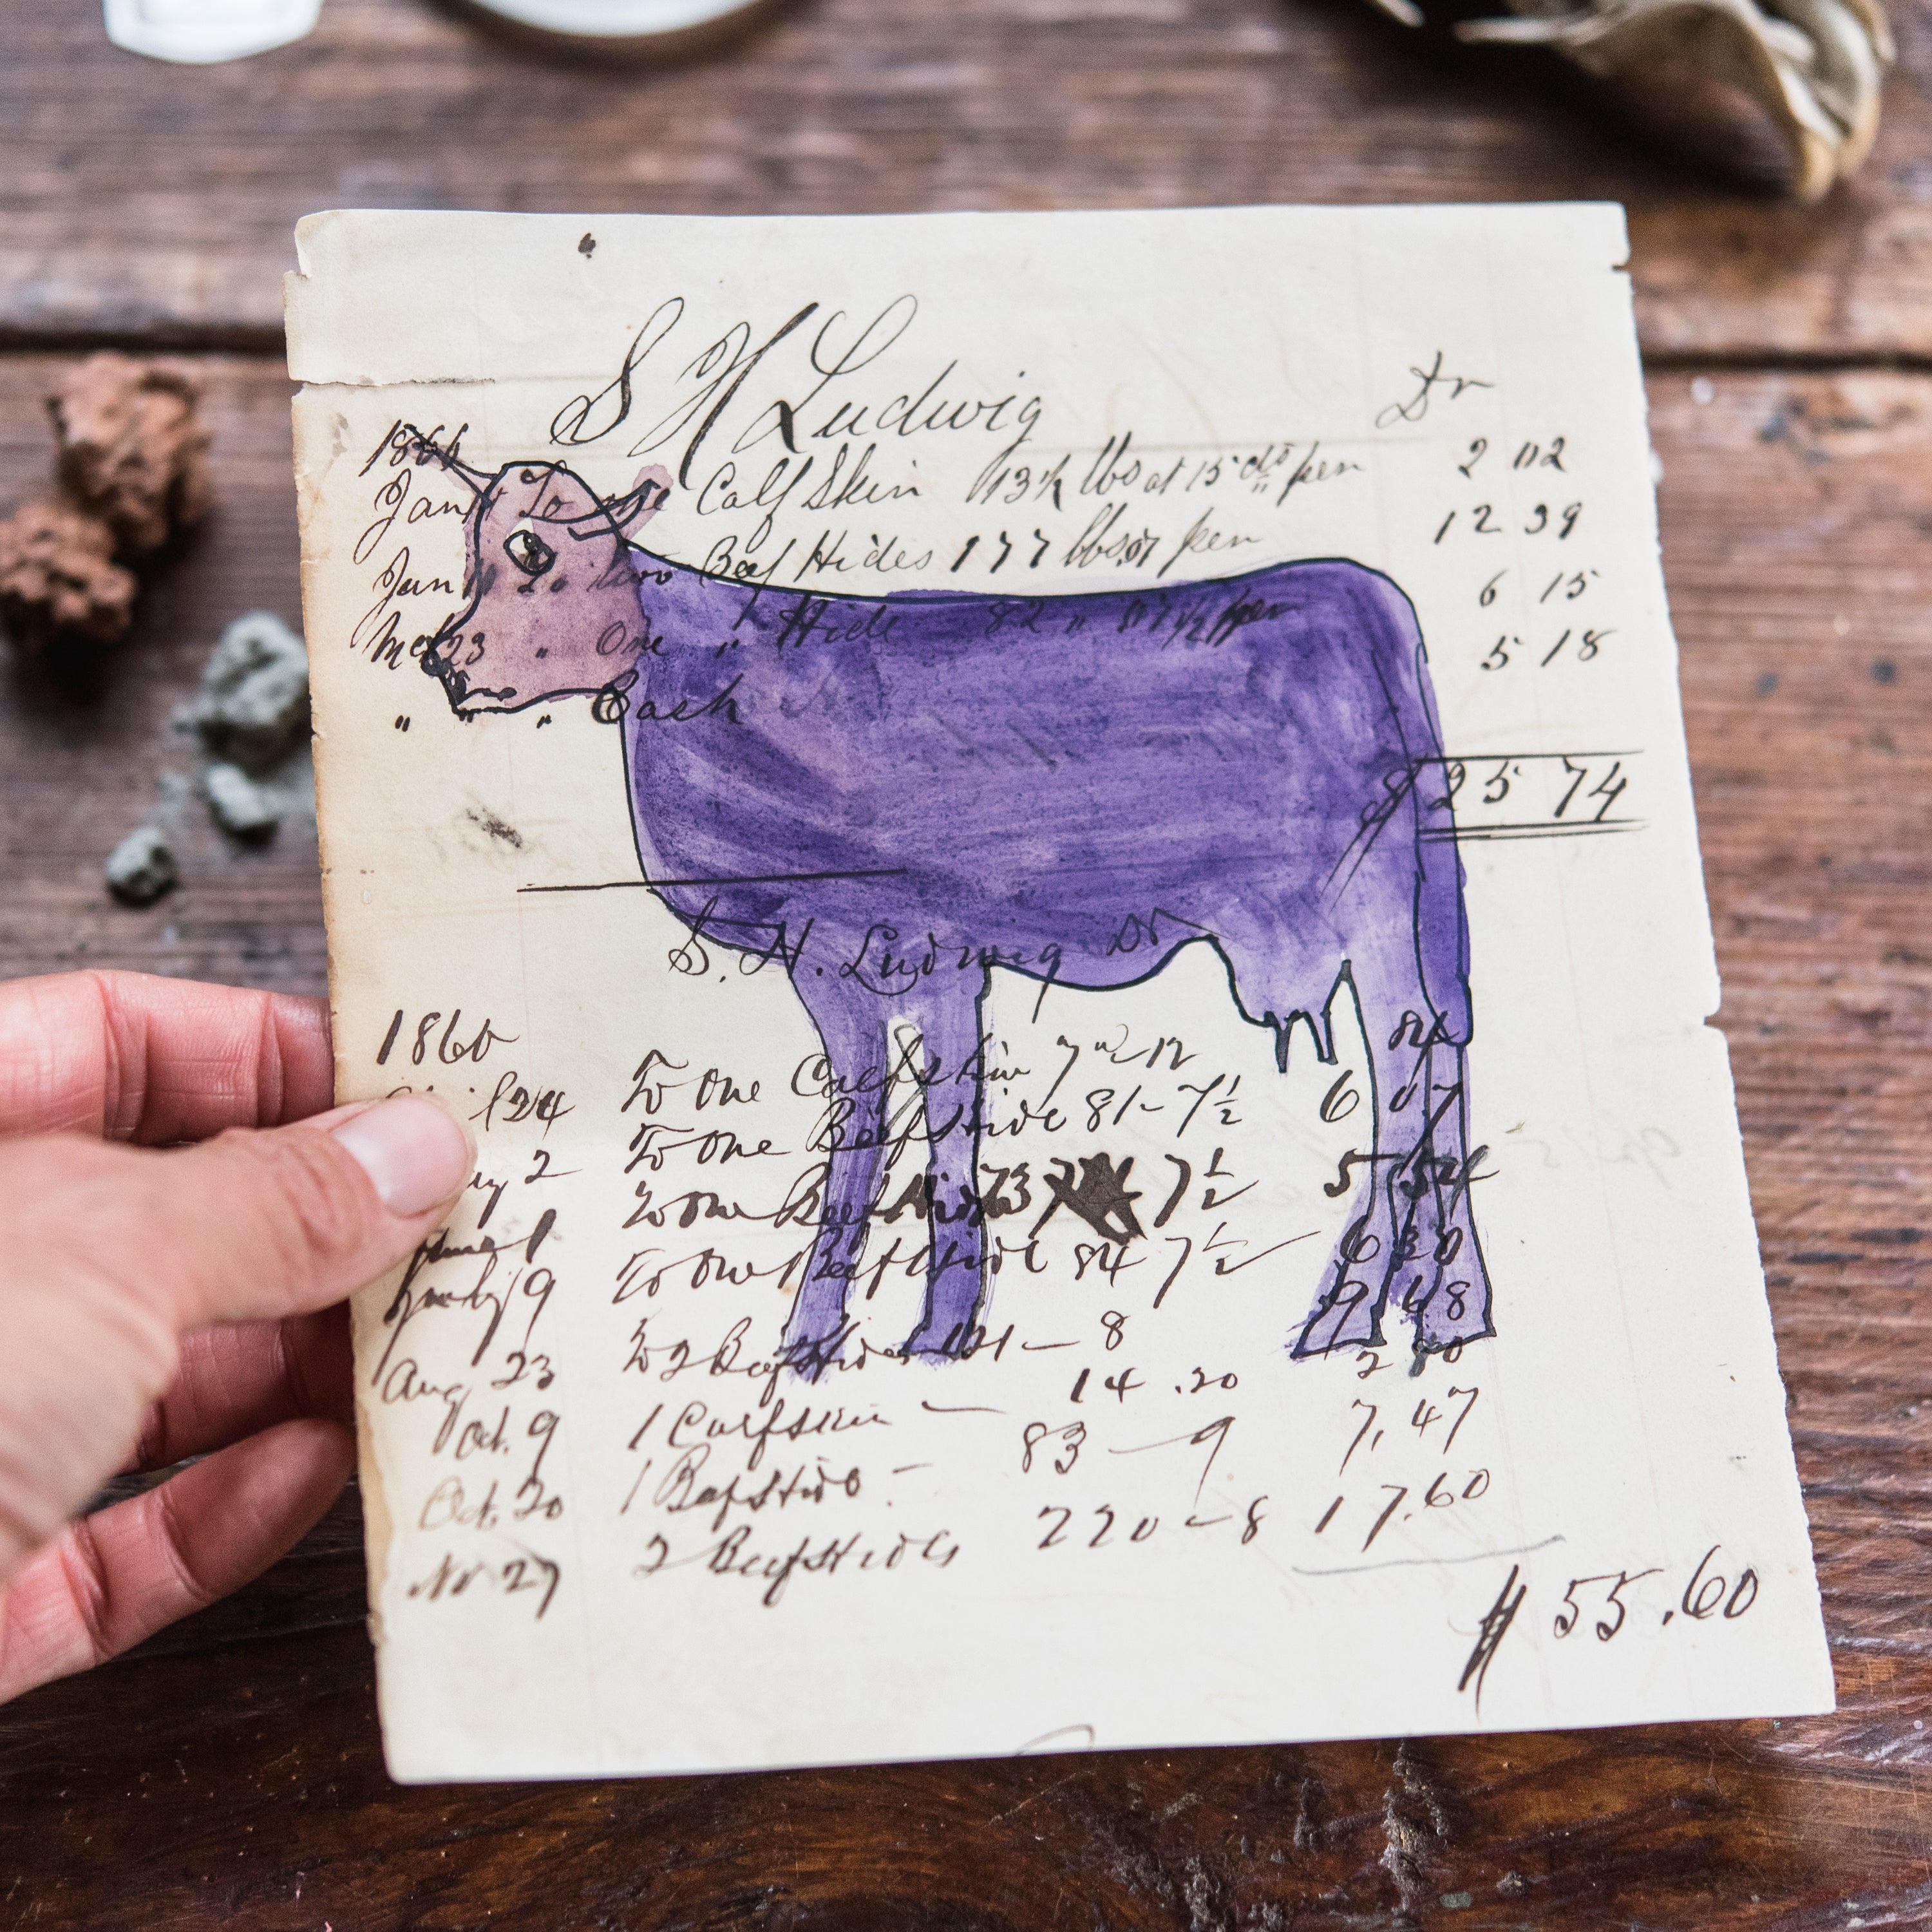 S H Ludwig Dr
1866
Jan To one Calf Skin 13½ lbs at 15 cts per 2 02
Jan To two Beef Hides 177 lbs 07 per 12 39
23 " One " Hide 82 " 07½ per 6 15
" " " Cash 5 18
$ 25 74
S. H. Ludwig Dr
1866
24 To One Calfskin 7 12 84
2 To One Beefshide 81 - 7½ 6 07
1 To One Beef 73 7½ 5 54
July 9 To One Beefshide 84 7½ 6 30
Aug 23 To 2 Beefshides 121 - 8 9 68
Oct. 9 1 Calfskin - 14 .20 2 80
Oct. 20 1 Beefshide - 83 - 9 7,47
27 2 Beefshides 220 - 8 17.60
$ 55.60